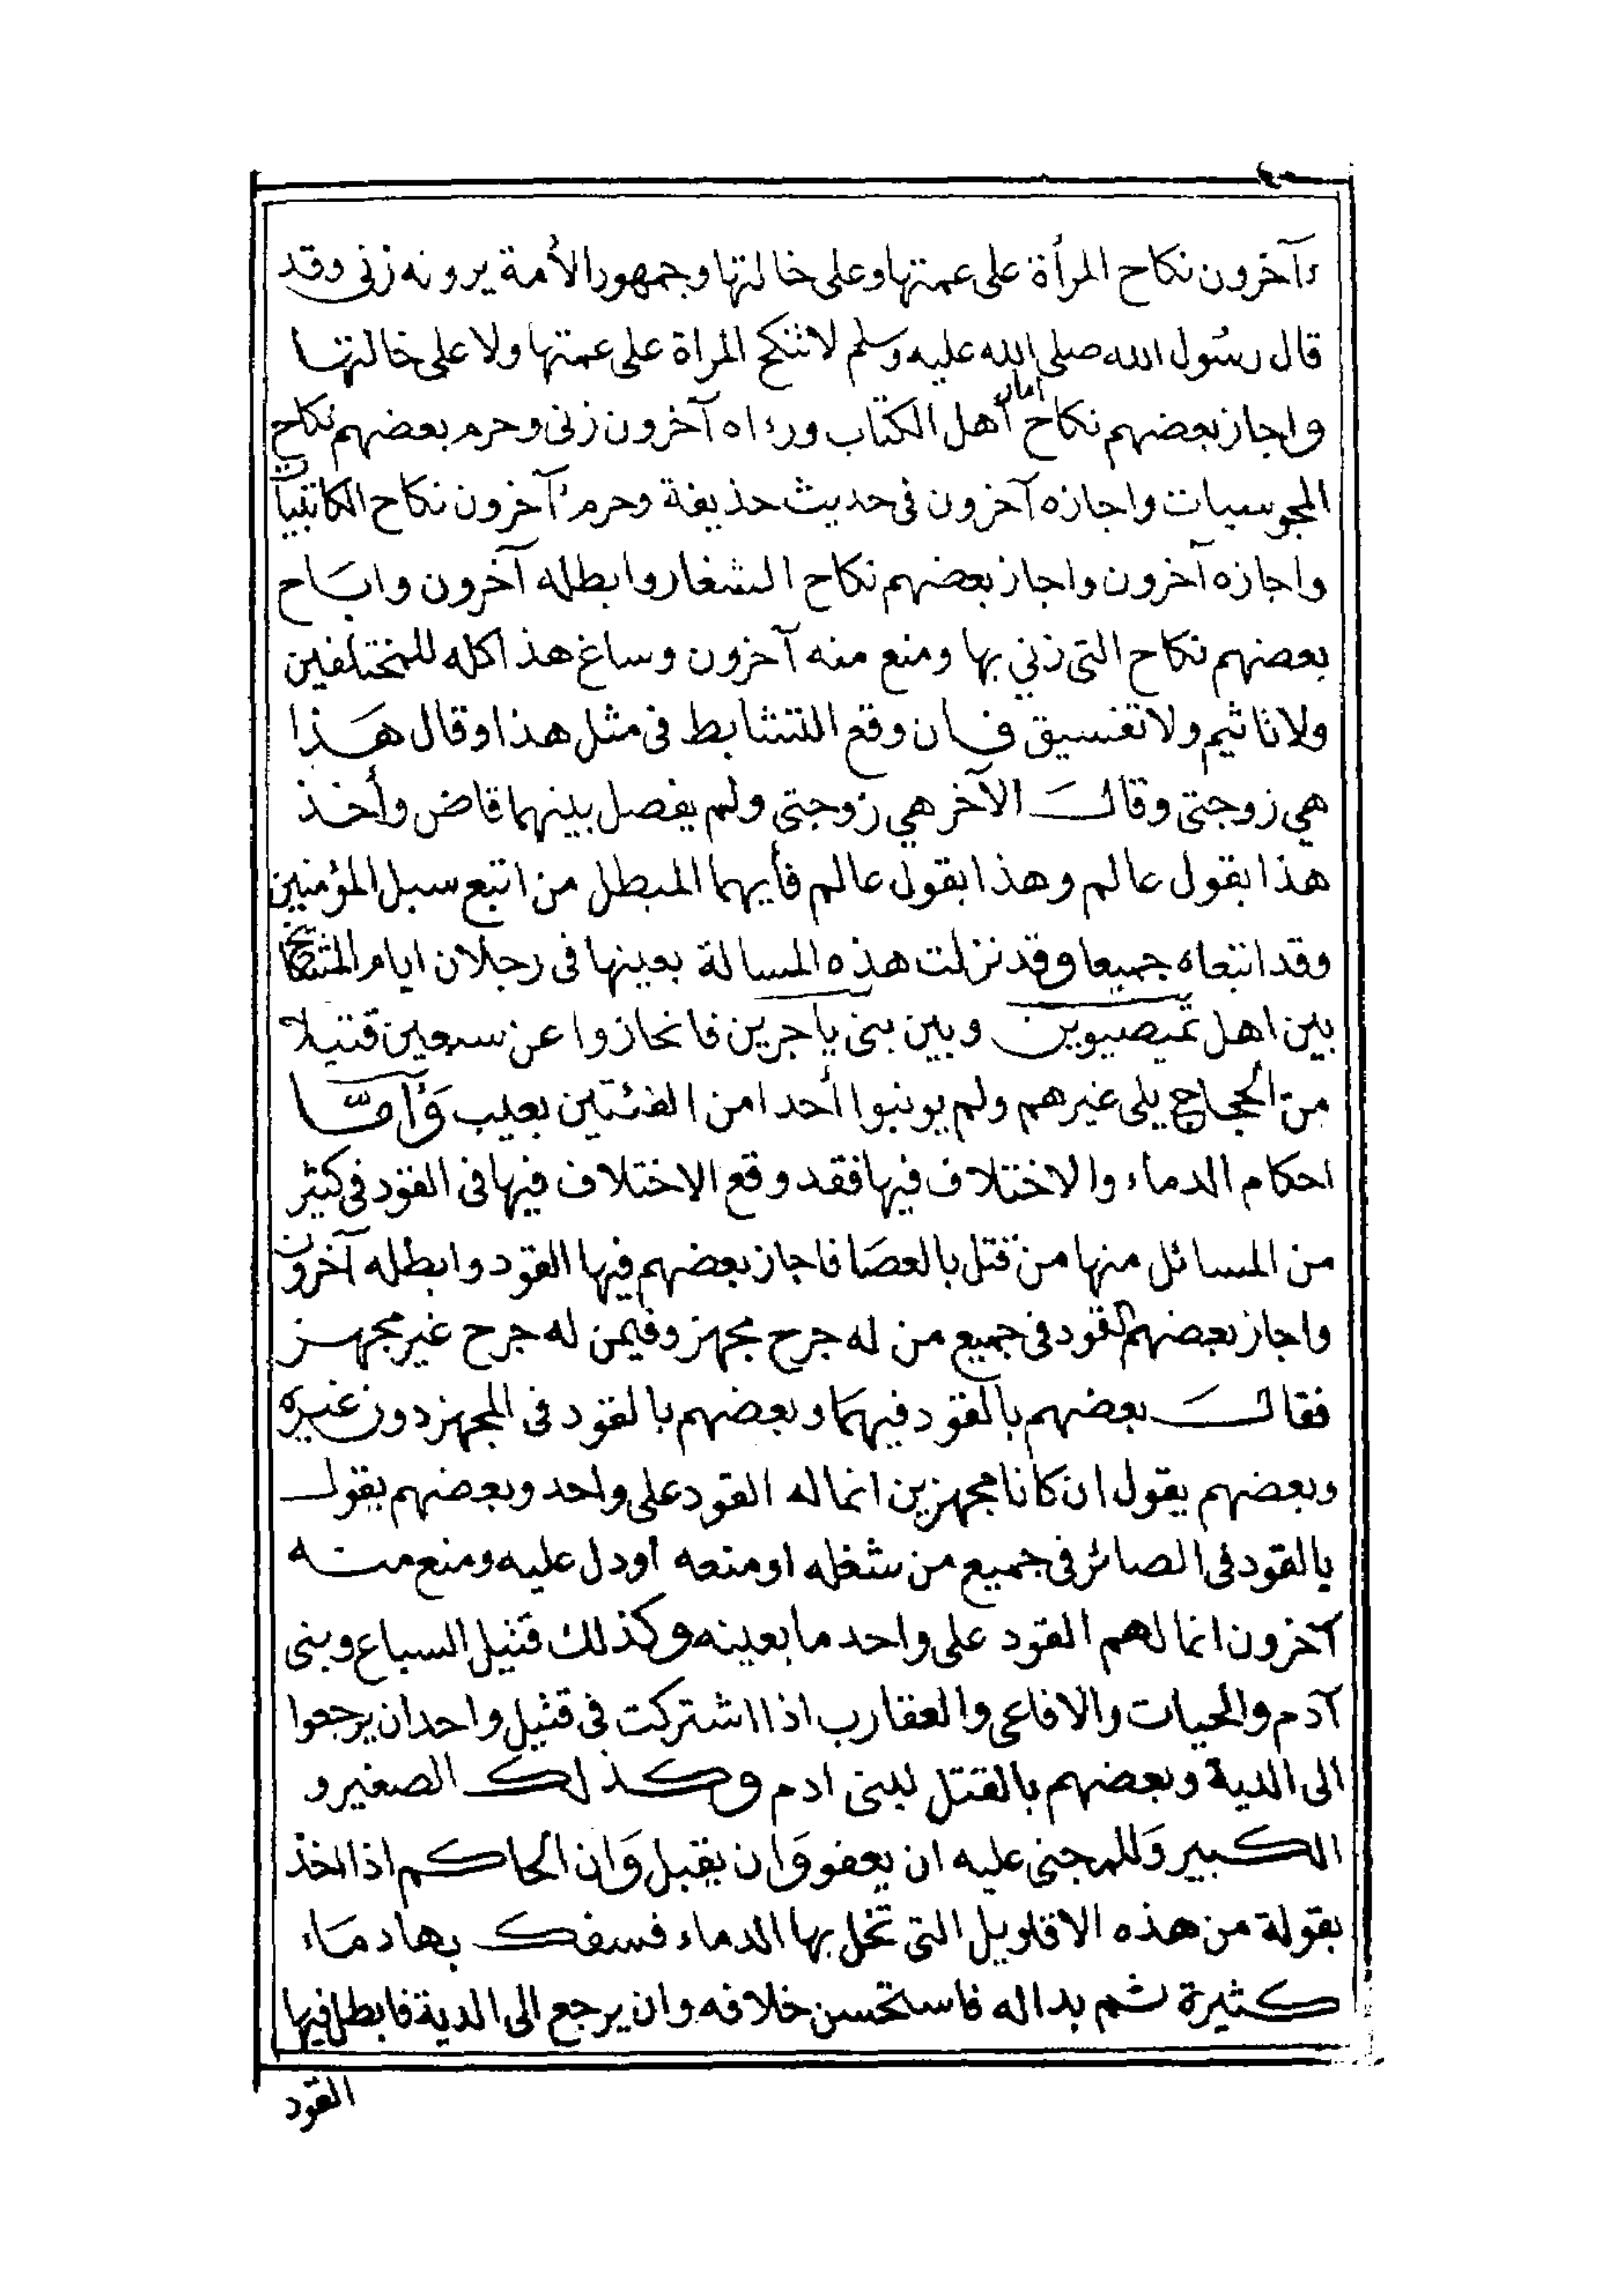 ءآخرون نكاح المرأة على عمتها وعلى خالتها وجمهور الأمة يرونه زنى وقد
قال رسُول الله صلى الله عليه وسلم لا تنكح المراة على عمتها ولا على خالتها
واجاز بعضهم نكاح اماء أهل الكتاب ورءاه آخرون زنى وحرم بعضهم نكاح
المجوسيات واجازه آخرون فى حديث حذيفة وحرم آخرون نكاح الكتابيات
واجازه آخرون واجاز بعضهم نكاح الشغار وابطله آخرون واباح
بعضهم نكاح التى زني بها ومنع منه آخرون وساغ هذا كله للمختلفين
ولا تاثيم ولا تفسيق فان وقع التشابط فى مثل هذا وقال هذا
هي زوجتى وقال الآخر هي زوجتى ولم يفصل بينهما قاض وأخذ
هذا بقول عالم وهذا بقول عالم فأيهما المبطل من اتبع سبل المؤمنين
وقد اتبعاه جميعا وقد نزلت هذه المسالة بعينها فى رجلان ايام المشايخ
بين اهل تميصيوين وبين بنى ياجرين فانحازوا عن سبعين قتيلا
من الحجاج يلى غيرهم ولم يونبوا أحدا من الفئتين بعيب وَأمَّا
احكام الدماء والاختلاف فيها فقد وقع الاختلاف فيها فى القود فى كثير
من المسائل منها من قتل بالعصَا فاجاز بعضهم فيها القود وابطله آخرون
واجاز بعضهم القود فى جميع من له جرح مجهز وفيمن له جرح غير مجهز
فقال بعضهم بالقود فيهما وبعضهم بالقود فى المجهز دون غيره
وبعضهم يقول ان كانا مجهزين انما له القود على واحد وبعضهم يقول
بالقود فى الصائر فى جميع من شغله او منعه اودل عليه ومنع منه
آخرون انما لهم القود على واحد ما بعينه وكذلك قتيل السباع وبنى
آدم والحيات والافاعى والعقارب اذا اشتركت فى قتيل واحد ان يرجعوا
الى الدية وبعضهم بالقتل لبنى ادم وكذلك الصغير و
الكبير وَللمجنى عليه ان يعفو وَان يقبل وَان الحاكم اذا اخذ
بقولة من هذه الاقاويل التى تحل بها الدماء فسفك بها دماء
كثيرة ثم بدا له فاستحسن خلافه وان يرجع الى الدية فابطل فيها
القود